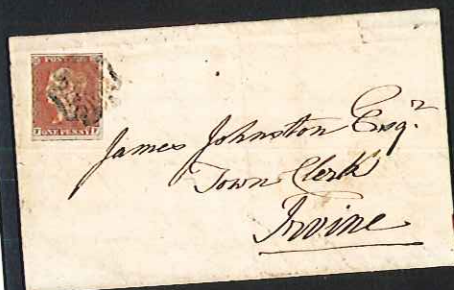 POSTAGE
ONE PENNY
James Johnston Esqr
Town Clerk
Irvine